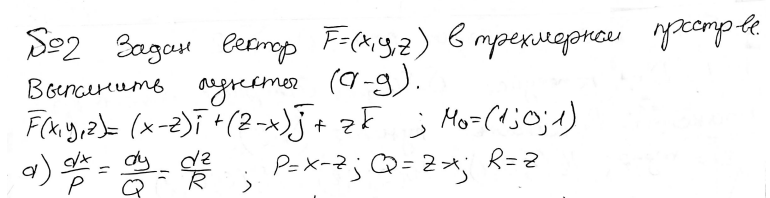 №2 Задан вектор F̅=(x,y,z) в трехмерном простр-ве.
Выполнить пункты (а-д).
F̅(x,y,z)= (x-z)i̅+(z-x)j̅+ zk̅ ; M₀=(1;0;1)
а) dx/P = dy/Q = dz/R ; P=x-z; Q=z-x; R=z